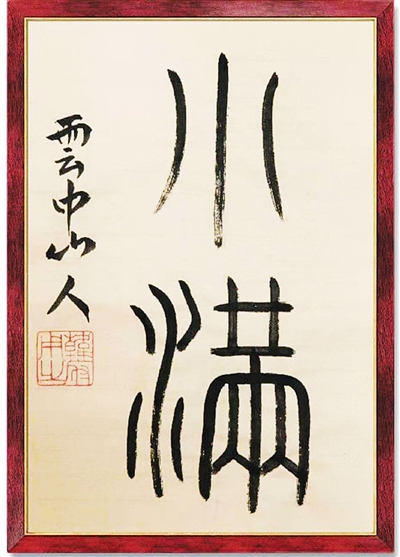 小滿
雲中山人